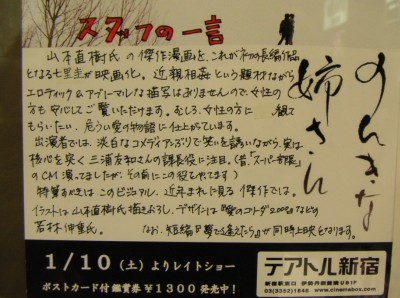 スタッフの一言
山本直樹氏の傑作漫画を、これが初の長編作品
となる七里圭が映画化。近親相姦という題材ながら
エロティック&アブノーマルな描写はありませんので、女性の
方も安心してご覧いただけます。むしろ、女性の方に観て
もらいたい、危うい愛の物語に仕上がっています。
出演者では、淡白なコメディアンぶりで笑いを誘いながら、実は
核心を突く三浦友和さんの課長役に注目。
のCM
特筆すべきはこのビジュアル。近年まれに見る傑作では。
イラストは山本直樹氏描きおろし、デザインは『愛のコリーダ2000』などの
若林伸重氏。
なお、短編『夢で逢えたら』が同時上映となります。
のんきな
姉さん
1/10(土)よりレイトショー
ポストカード付鑑賞券¥1300発売中!
テアトル新宿
新宿駅東口 伊勢丹前 B1F
03(3352)1846 www.cinemabox.com